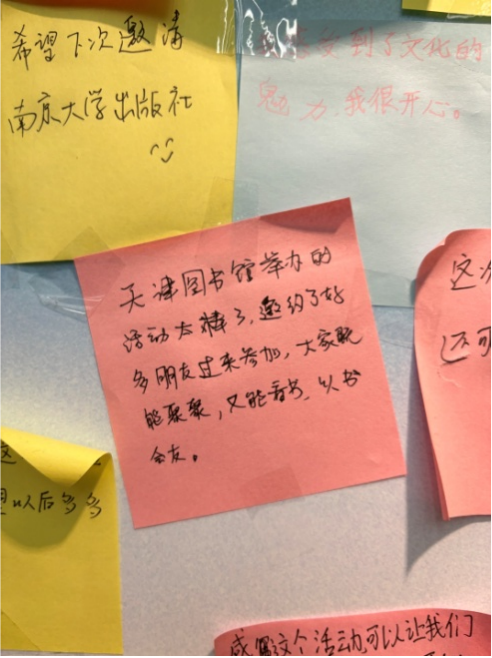 希望下次邀请
南京大学出版社
受到了文化的
魅力,我很开心。
天津图书馆举办的
活动太棒了,邀约了好
多朋友过来参加,大家既
能聚聚,又能看书,以书
会友。
这次
还可
这
望以后多多
感谢这个活动可以让我们